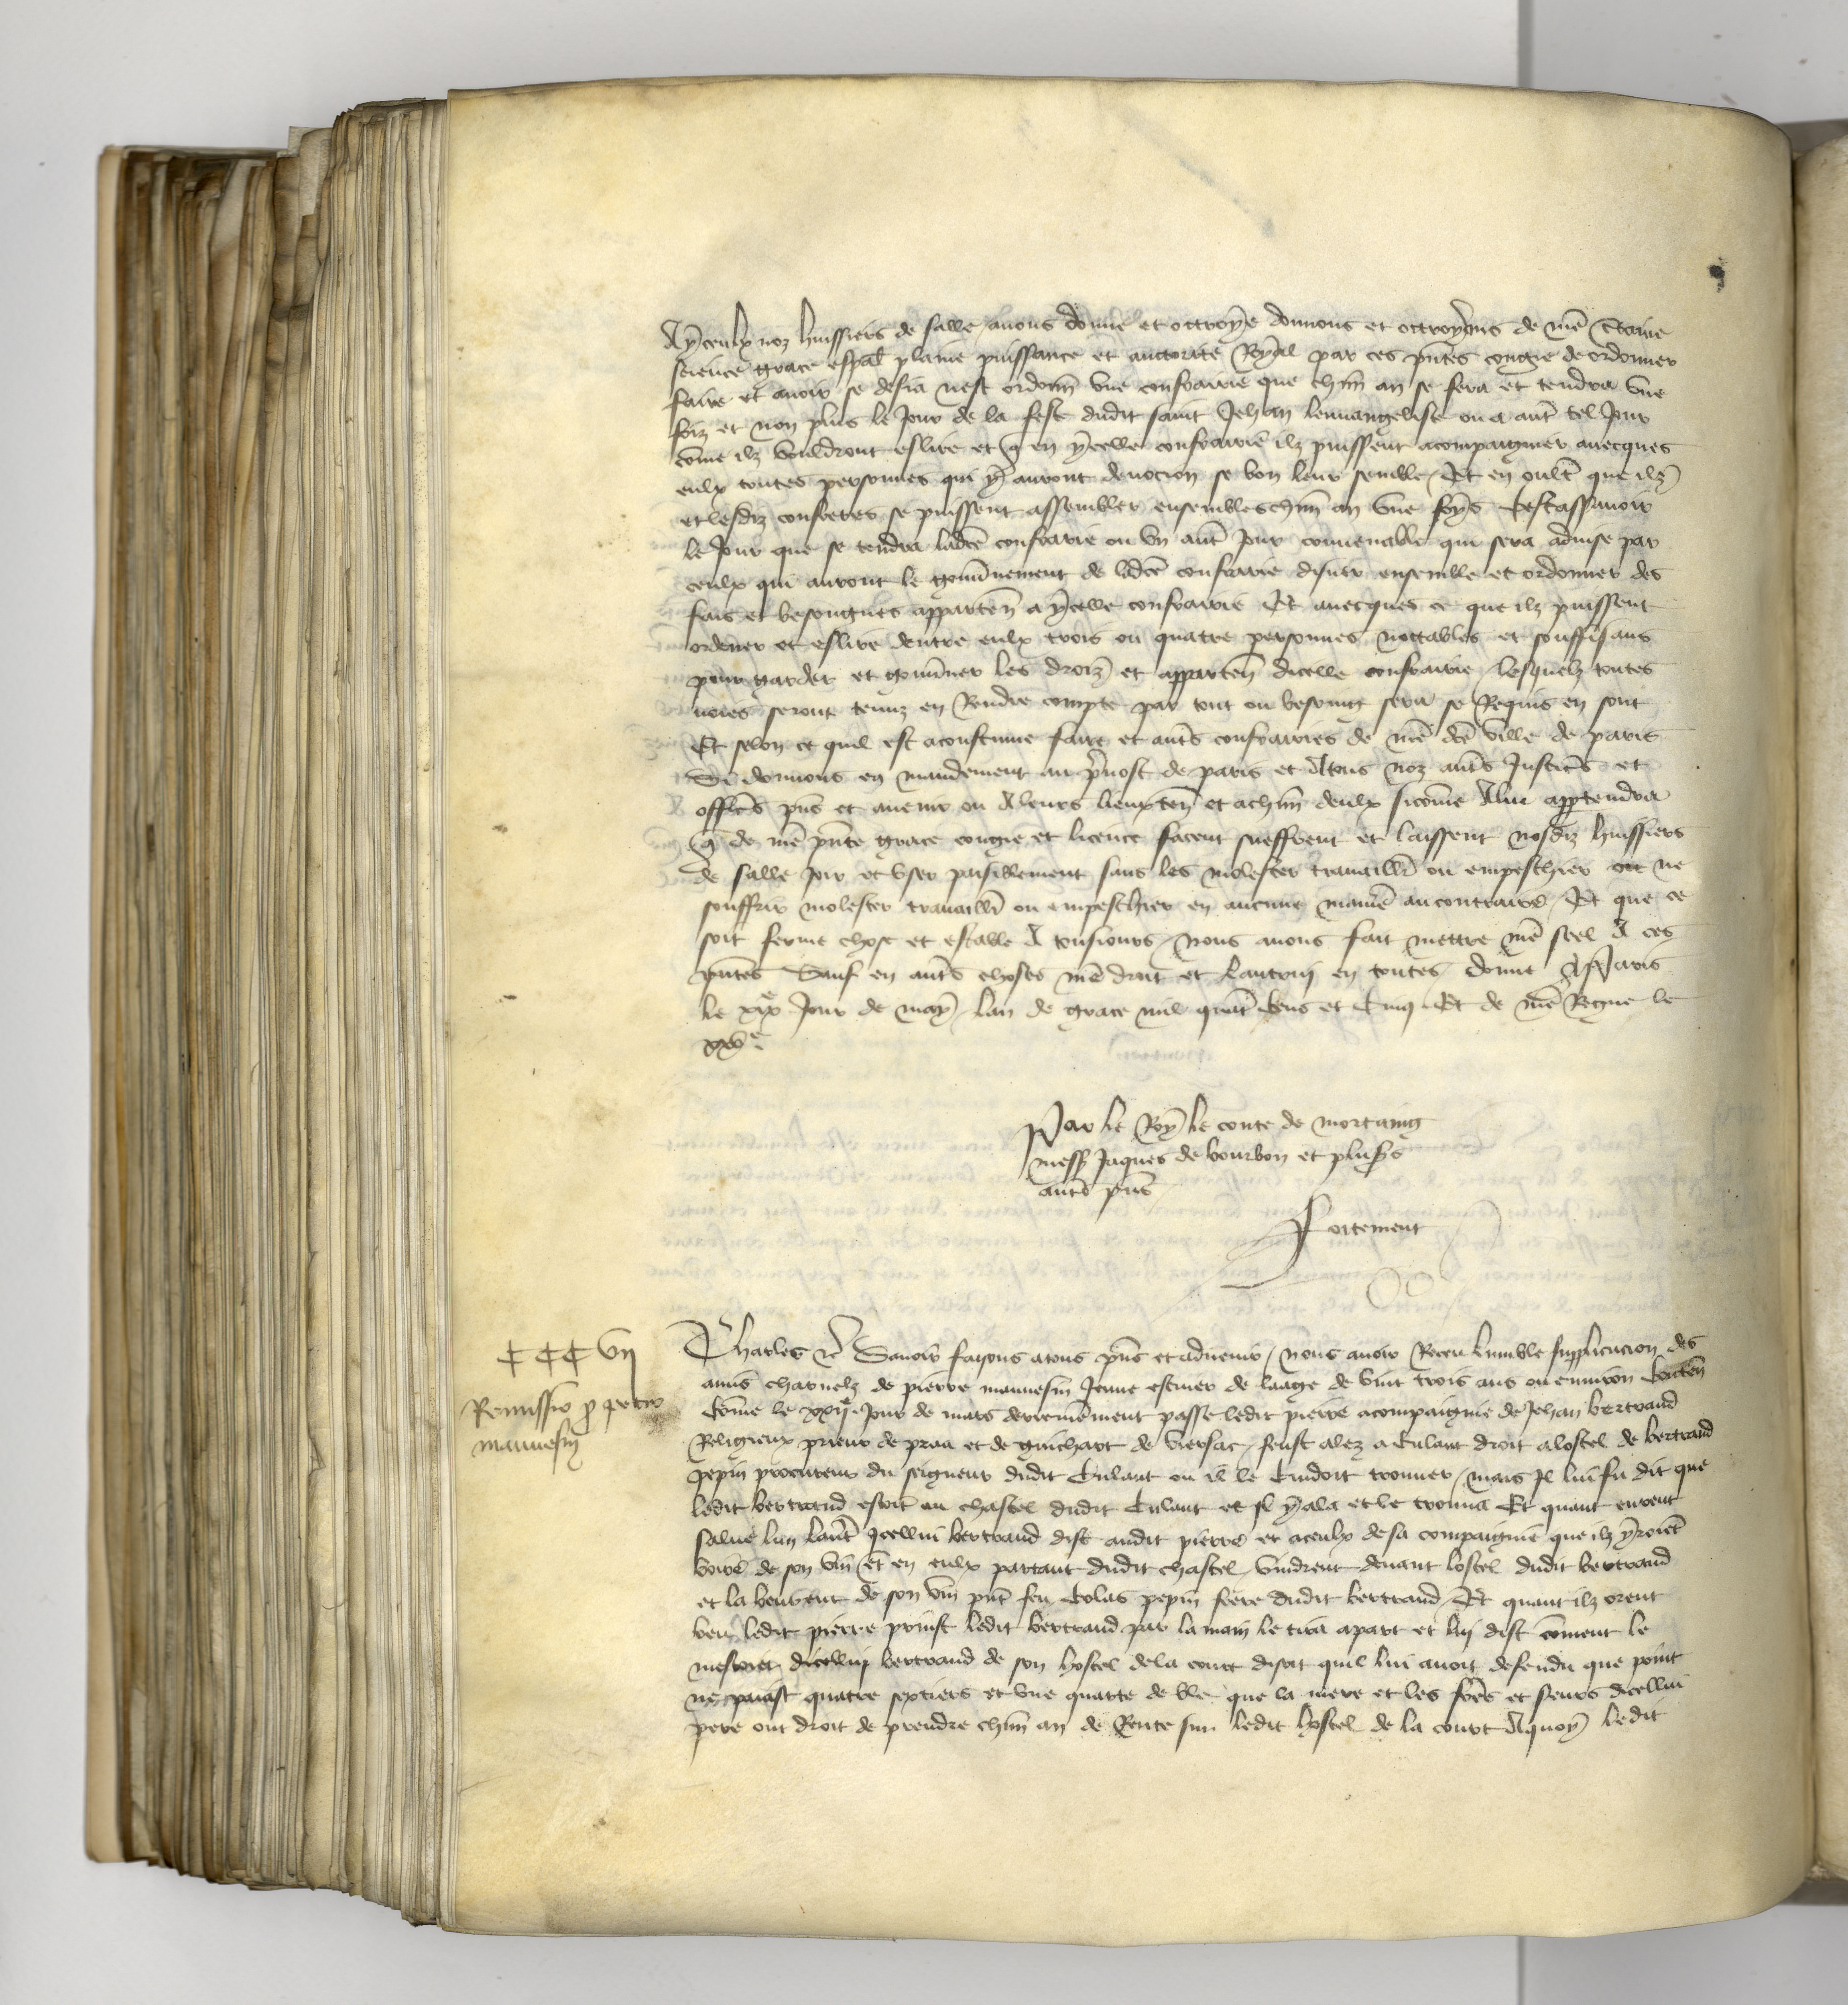 A yceulx noz huissiers de salle avons donne et octroye donnons et octroyons de nre Ctaine
science grace espal plaine puissance et auctorite Royal par ces pntes congie de ordonner
faire et avoir se desia nest ordonn une confrairie que chun an se fera et tendra une
foiz et non plus le Jour de la feste dudit saint Jehan leuuangeliste ou a aut tel Jour
come ilz vouldront eslire et q en ycelle confrairie ilz puissent acompaignier avecques
eulx toutes personnes qui y auront devocion se bon leur semble / Et en oult que ilz
et lesdiz confreres se puissent assembler ensembles chun an une foys Cestassavoir
le Jour que se tendra ladce confrairie ou un aut Jour convenable qui sera advise par
ceulx qui auront le gouvnement de ladce confrairie disner ensemble et ordonner des
fais et besongnes apparten a ycelle confrairie Et avecques ce que ilz puissent
ordener et eslire dentre eulx trois ou quatre personnes nottables et souffisans
pour garder et gouvner les droiz et apparten dicelle confrairie / lesquelz toutes
voies seront tenuz en Rendre compte par tout ou besoing sera se Requis en sont
Et selon ce quil est acoustume faire et auts confrairies de nre dce ville de paris
Si donnons en mandement au pvost de paris et Atous noz auts Justics et
offics pns et avenir ou Aleurs lieuxten et achun deulx sicome Alui apptendra
q de nre pnte grace congie et licence facent sueffrent et laissent nosdiz huissiers
de salle joir et user paisiblement sans les molester travaillr ou empeschier ou ne
souffrir molester travaillr ou empeschier en aucune manie au contraire / Et que ce
soit ferme chose et estable A tousiours / nous avons fait mettre nre seel A ces
pntes Sauf en auts choses nre droit et lautruy en toutes / donne A Paris
le xixe Jour de may / lan de grace mil quat Cens et Cinq Et de nre Regne le
xxve.
Par le Roy le conte de mortaing
messe Jaques de bourbon et plusrs
auts pns
Fortement
CCC VII
Remissio p petro
mauvesin
Charles &c Savoir faisons atous pns et advenir / nous avoir Receu lumble supplicacion des
amis charnelz de pierre mauvesin Jeune escuier de laage de vint trois ans ou environ Conten
Come le xxije Jour de mars derreniement passe ledit pierre acompaignie de Jehan bertrand
Religieux prieur de praa et de guichart de viersac / feust alez a Culant droit alostel de bertrand
pepin procureur du seigneur dudit Culant ou il le Cuidoit trouver / mais Il lui fu dit que
ledit bertrand estoit au chastel dudit Culant et Il y ala et le trouva Et quant eurent
salue lun laut Icellui bertrand dist audit pierre et aceulx desa compaignie que ilz yroiet
boire de son vin Et en eulx partant dudit chastel vindrent devant lostel dudit bertrand
et la beurent de son vin pnt feu Colas pepin frere dudit bertrand / Et quant ilz orent
beu ledit pierre prinst ledit bertrand par la main le tira apart et luy dist coment le
mestoier dicellui bertrand de son hostel dela court disoit quil lui avoit defendu que point
ne paiast quatre sextiers et une quarte de ble que la mere et les fres et seurs dicellui
pere ont droit de prendre chun an de Rente sur ledit hostel de la court Aquoy ledit